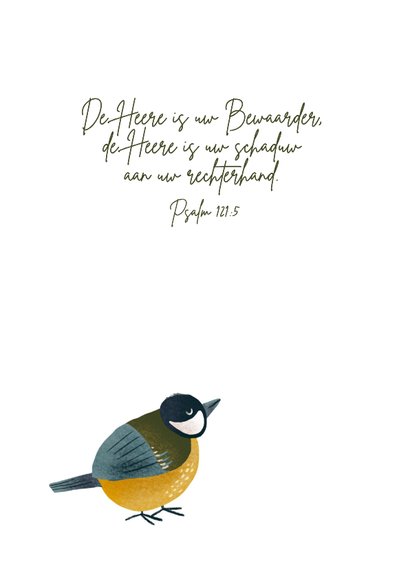 De Heere is uw Bewaarder,
de Heere is uw schaduw
aan uw rechterhand.
Psalm 121:5